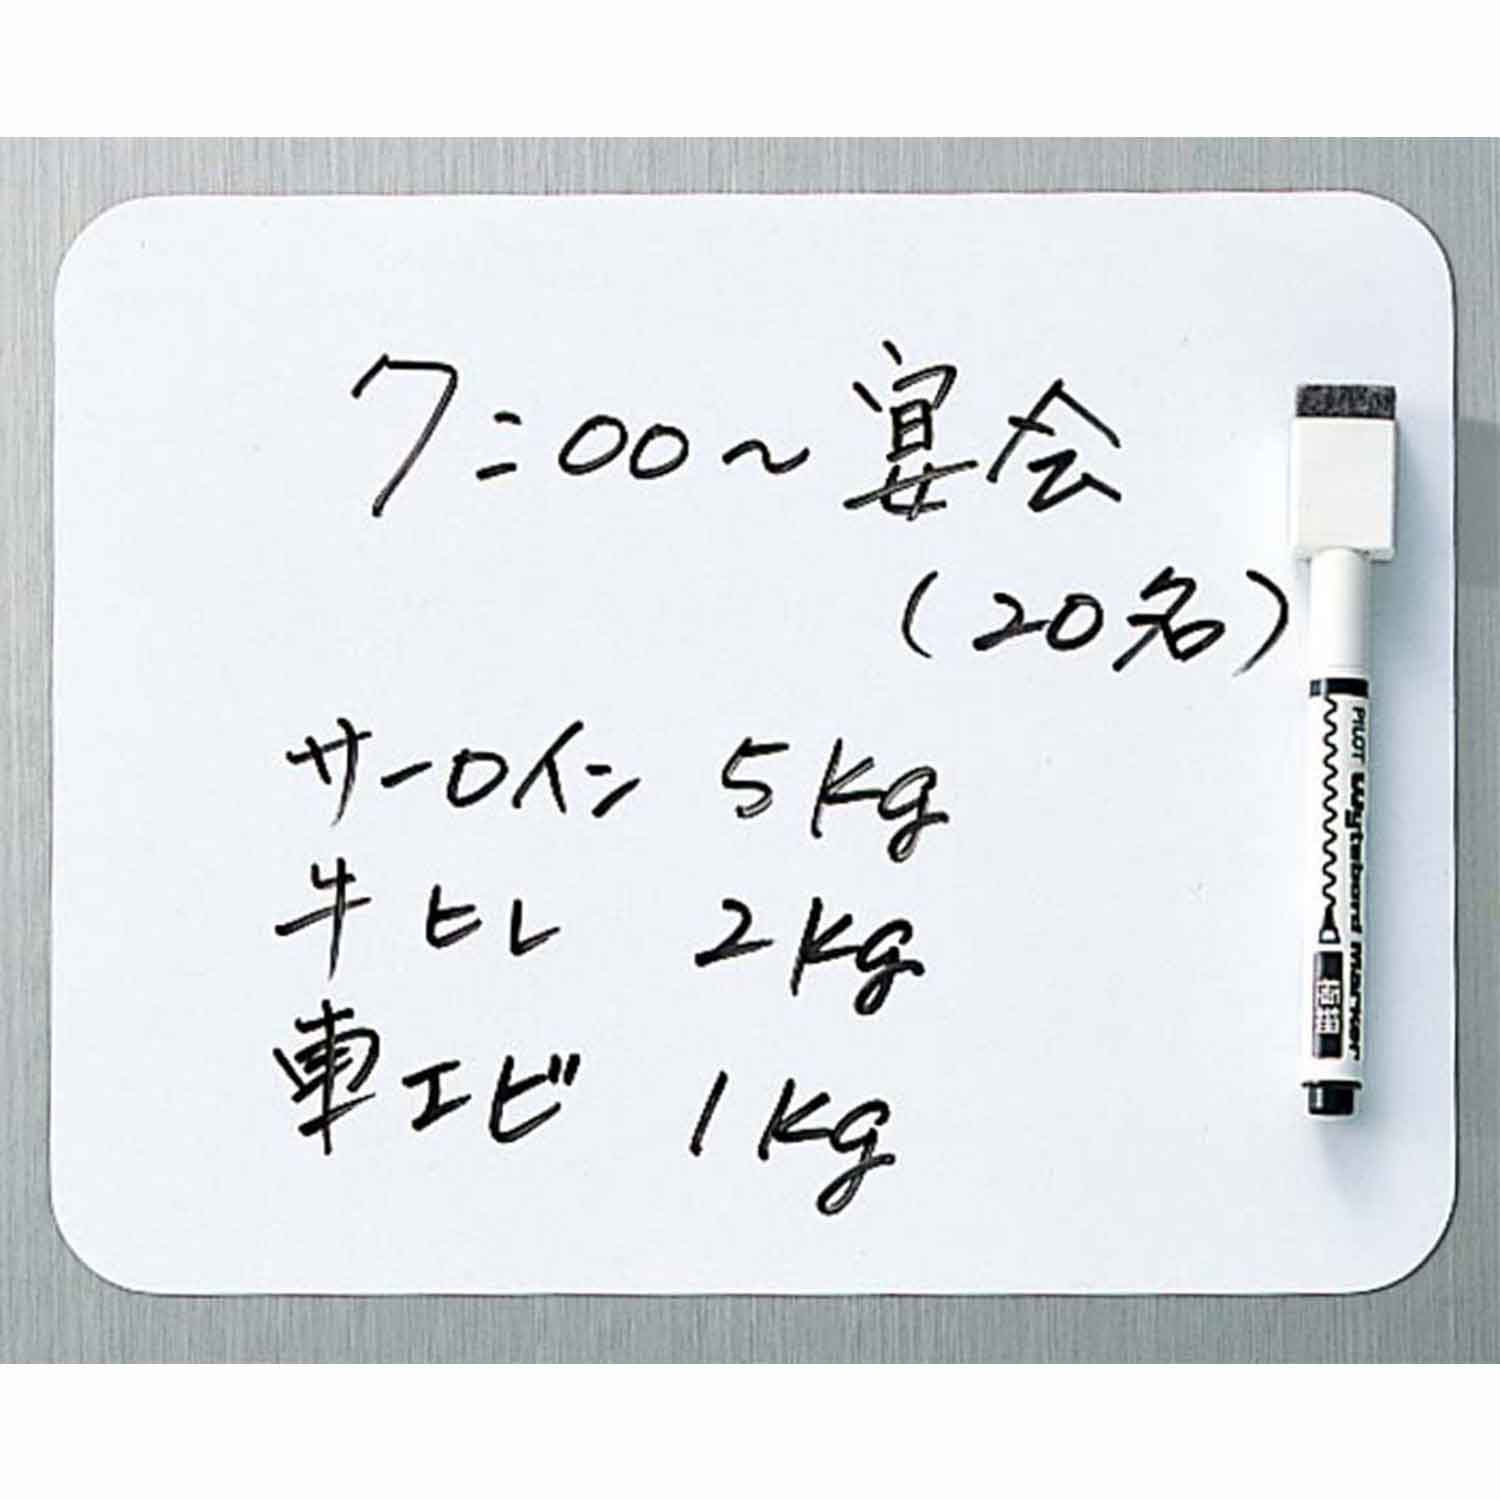 7:00～宴会
(20名)
サーロイン 5kg
牛ヒレ 2kg
車エビ 1kg
PILOT Wytebord marker